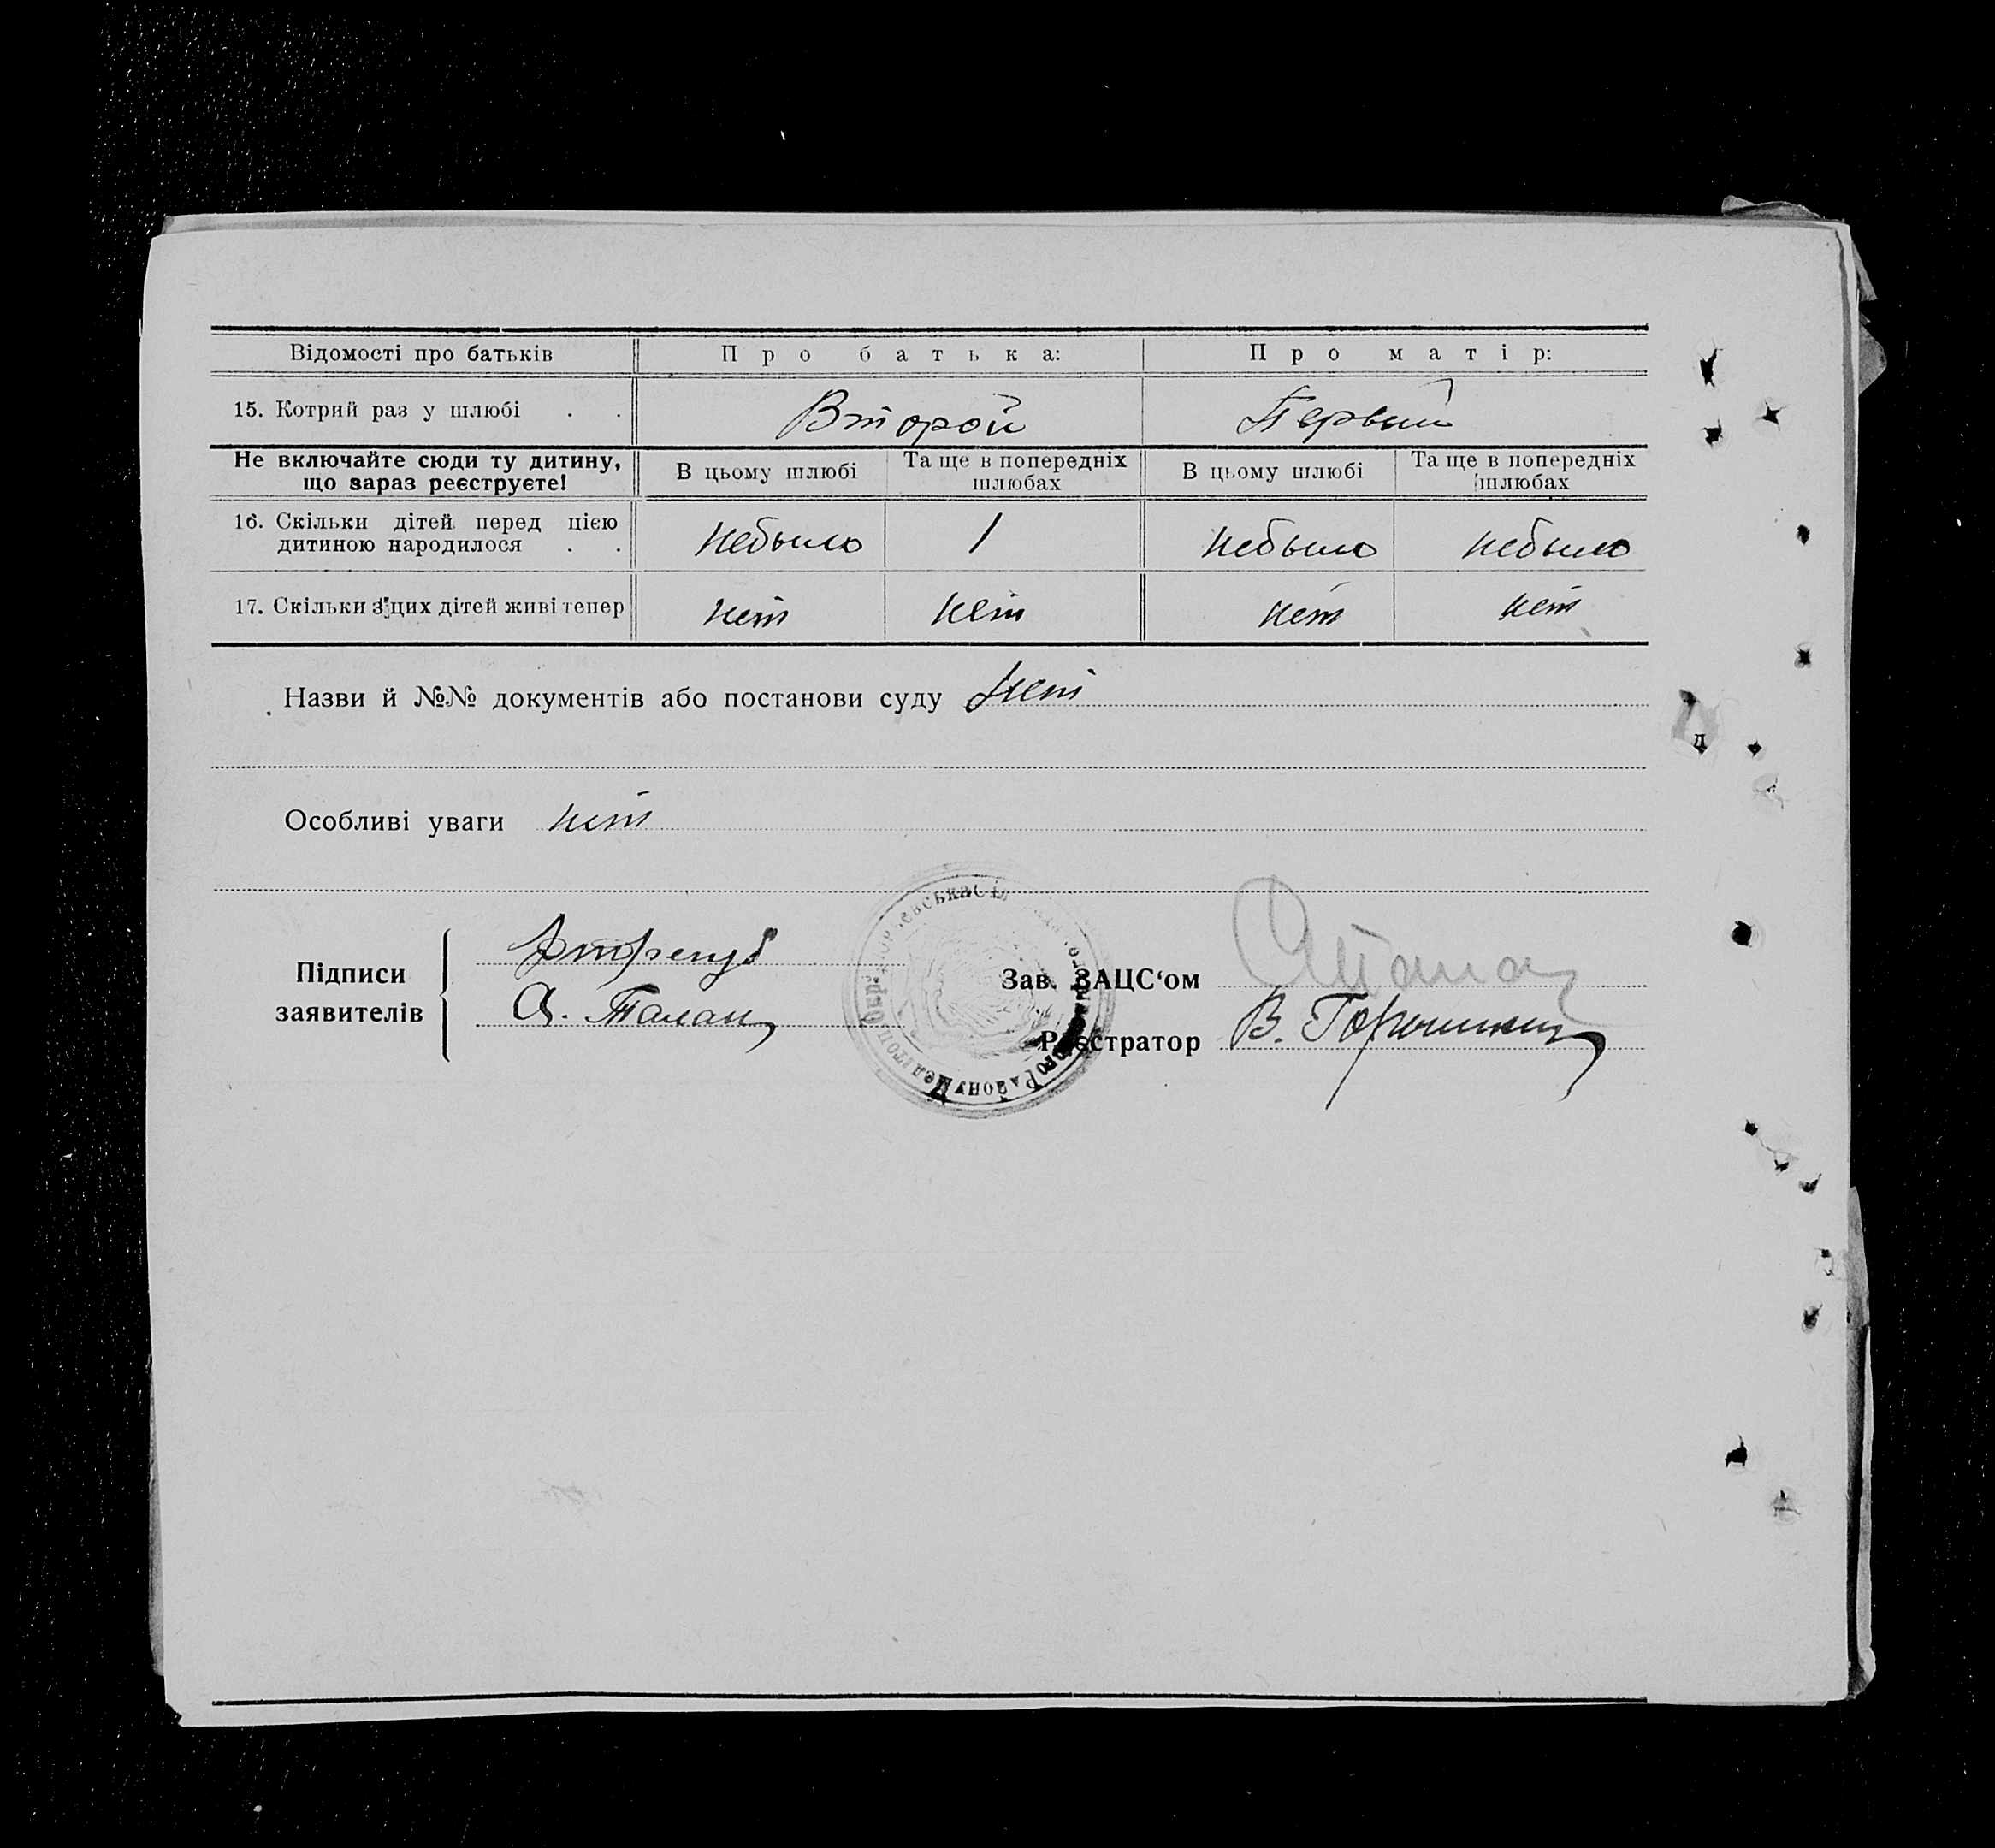 Відомості про батьків Про батька: Про матір:
15. Котрий раз у шлюбі . . Второй Первый
Не включайте сюди ту дитину, що зараз реєструєте! В цьому шлюбі Та ще в попередніх шлюбах В цьому шлюбі Та ще в попередніх шлюбах
16. Скільки дітей перед цією дитиною народилося . . небыло 1 небыло небыло
17. Скільки з'цих дітей живі тепер нет нет нет нет
Назви й №№ документів або постанови суду Нет
Особливі уваги нет
Підписи заявителів
А. Талан
Зав. ЗАЦС‘ом
Реєстратор В.
Району